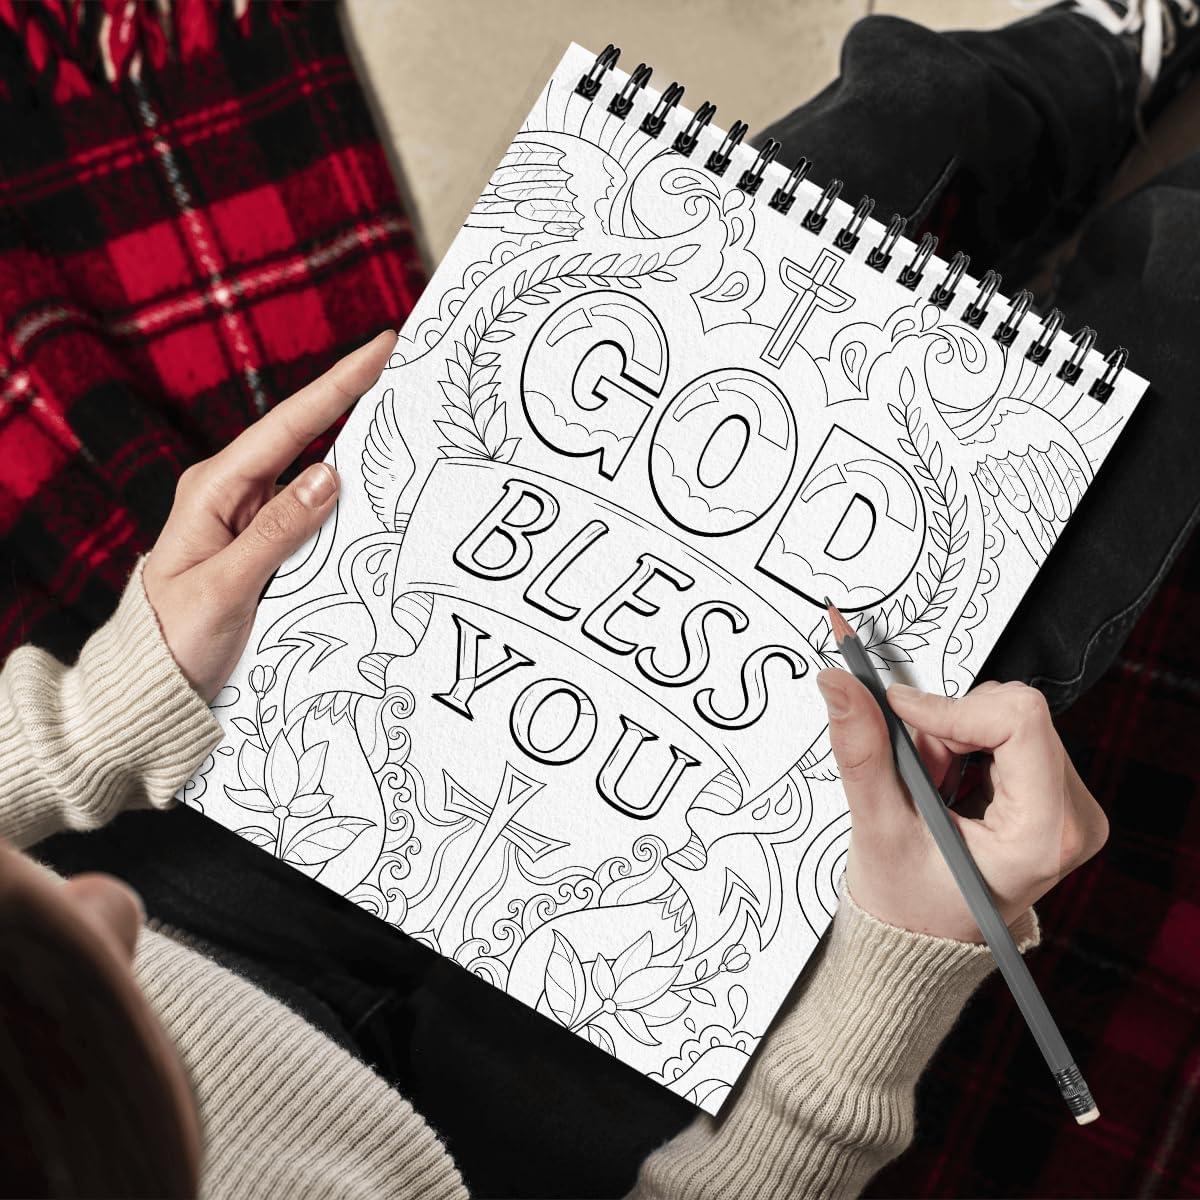 GOD
BLESS
YOU